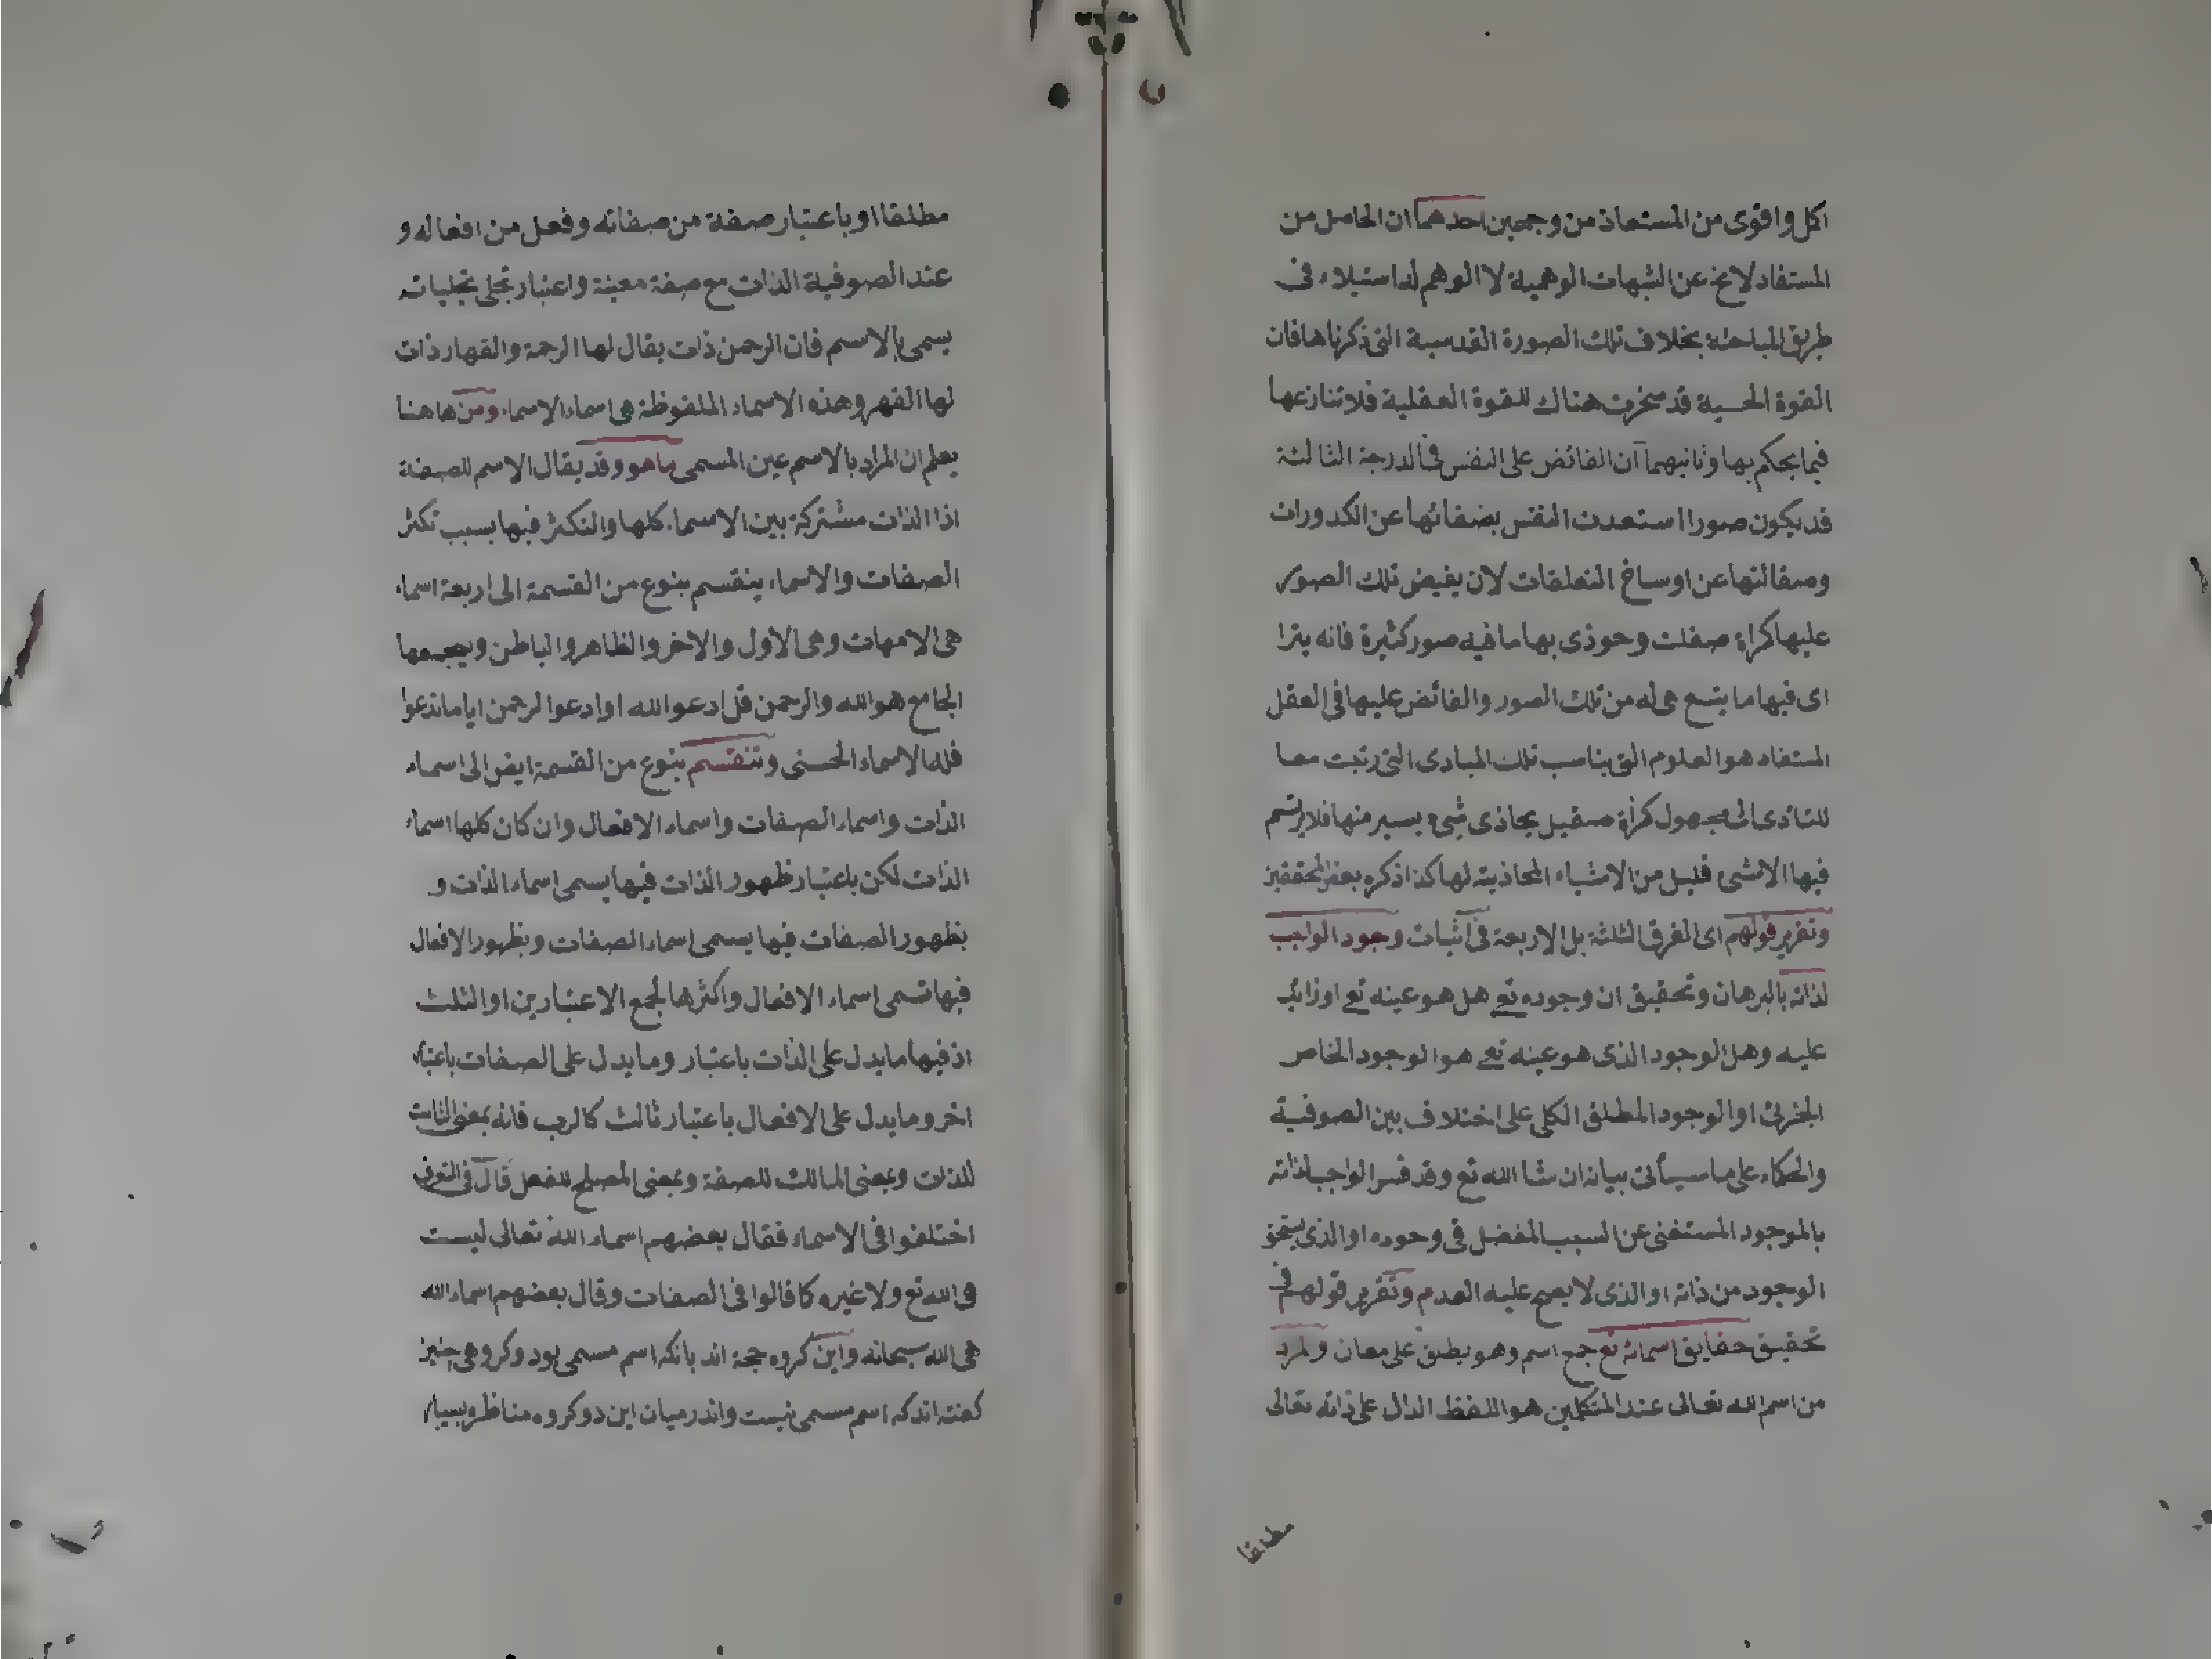 اكمل واقوى من المستعاذ من وجهين احدهما ان الحاصل من
المستفاد لا يخ عن الشبهات الوهمية لا الوهم له استيلاء فى
طريق المباحثه بخلاف تلك الصورة القدسية التى ذكرناها فان
القوة الحسية قد سخرت هناك للقوة العقلية فلا تنازعها
فيما يحكم بها وثانيهما ان الفائض على النفس فى الدرجة الثالثة
قد يكون صورا استعدت النفس بضفائها عن الكدورات
وصقالتها عن اوساخ التعلقات لان يفيض تلك الصور
عليها كمرأة صقلت وحوذى بها ما فيه صور كثيرة فانه يترا
اى فيها ما يتسع هى له من تلك الصور والفائض عليها فى العقل
المستفاد هو العلوم التى يناسب تلك المبادى التى رتبت معا
للتادى الى مجهول كمرأة صقيل يحاذى شىء يسير منها فلا يرتسم
فيها الا شى قليل من الاشياء المحاذية لها كذا ذكره بعض المحققين
وتقرير قولهم اى الفرق الثلثة بل الاربعة فى اثبات وجود الواجب
لذاته بالبرهان وتحقيق ان وجوده تع هل هو عينه تع او زايد
عليه وهل الوجود الذى هو عينه تع هو الوجود الخاص
الجزئى او الوجود المطلق الكلى على اختلاف بين الصوفية
والحكماء على ما سيأتى بيانه ان شا الله تع وقد فسر الواجب لذاته
بالموجود المستغنى عن السبب المفضل فى وجوده او الذى يستحق
الوجود من ذاته او الذى لا يصح عليه العدم وتقرير قولهم فى
تحقيق حقايق اسمائه تع جمع اسم وهو يطلق على معان والمراد
من اسم الله تعالى عند المتكلمين هو اللفظ الدال على ذاته تعالى
مطلقا
مطلقا او باعتبار صفة من صفاته وفعل من افعاله و
عند الصوفية الذات مع صفة معينة واعتبار تجلى تجلياته
يسمى بالاسم فان الرحمن ذات يقال لها الرحمة والقهار ذات
لها القهر وهذه الاسماء الملفوظة هى اسماء الاسماء ومن هاهنا
يعلم ان المراد بالاسم عين المسمى ما هو وقد يقال الاسم للصفة
اذا الذات مشتركة بين الاسماء كلها والتكثر فيها بسبب تكثر
الصفات والاسماء ينقسم بنوع من القسمة الى اربعة اسماء
هى الامهات وهى الاول والاخر والظاهر والباطن ويجمعها
الجامع هو الله والرحمن قل ادعوا الله او ادعوا الرحمن اياما تدعوا
فله الاسماء الحسنى وتنقسم بنوع من القسمة ايض الى اسماء
الذات واسماء الصفات واسماء الافعال وان كان كلها اسماء
الذات لكن باعتبار ظهور الذات فيها يسمى اسماء الذات و
بظهور الصفات فيها يسمى اسماء الصفات وبظهور الافعال
فيها تسمى اسماء الافعال واكثرها لجمع الاعتبارين او الثلث
اذ فيها ما يدل على الذات باعتبار وما يدل على الصفات باعتبار
اخر وما يدل على الافعال باعتبار ثالث كالرب فانه بمعنى الثابت
للذات وبمعنى المالك للصفة وبمعنى المصلح للفعل قال فى التعرف
اختلفوا فى الاسماء فقال بعضهم اسماء الله تعالى ليست
هى الله تع ولا غيره كما قالوا فى الصفات وقال بعضهم اسماء الله
هى الله سبحانه واين كروه حجة اند بانكه اسم مسمى بود وكروهى چنين
كفته اند كه اسم مسمى نيست واندر ميان اين دو كروه مناظره بسيار